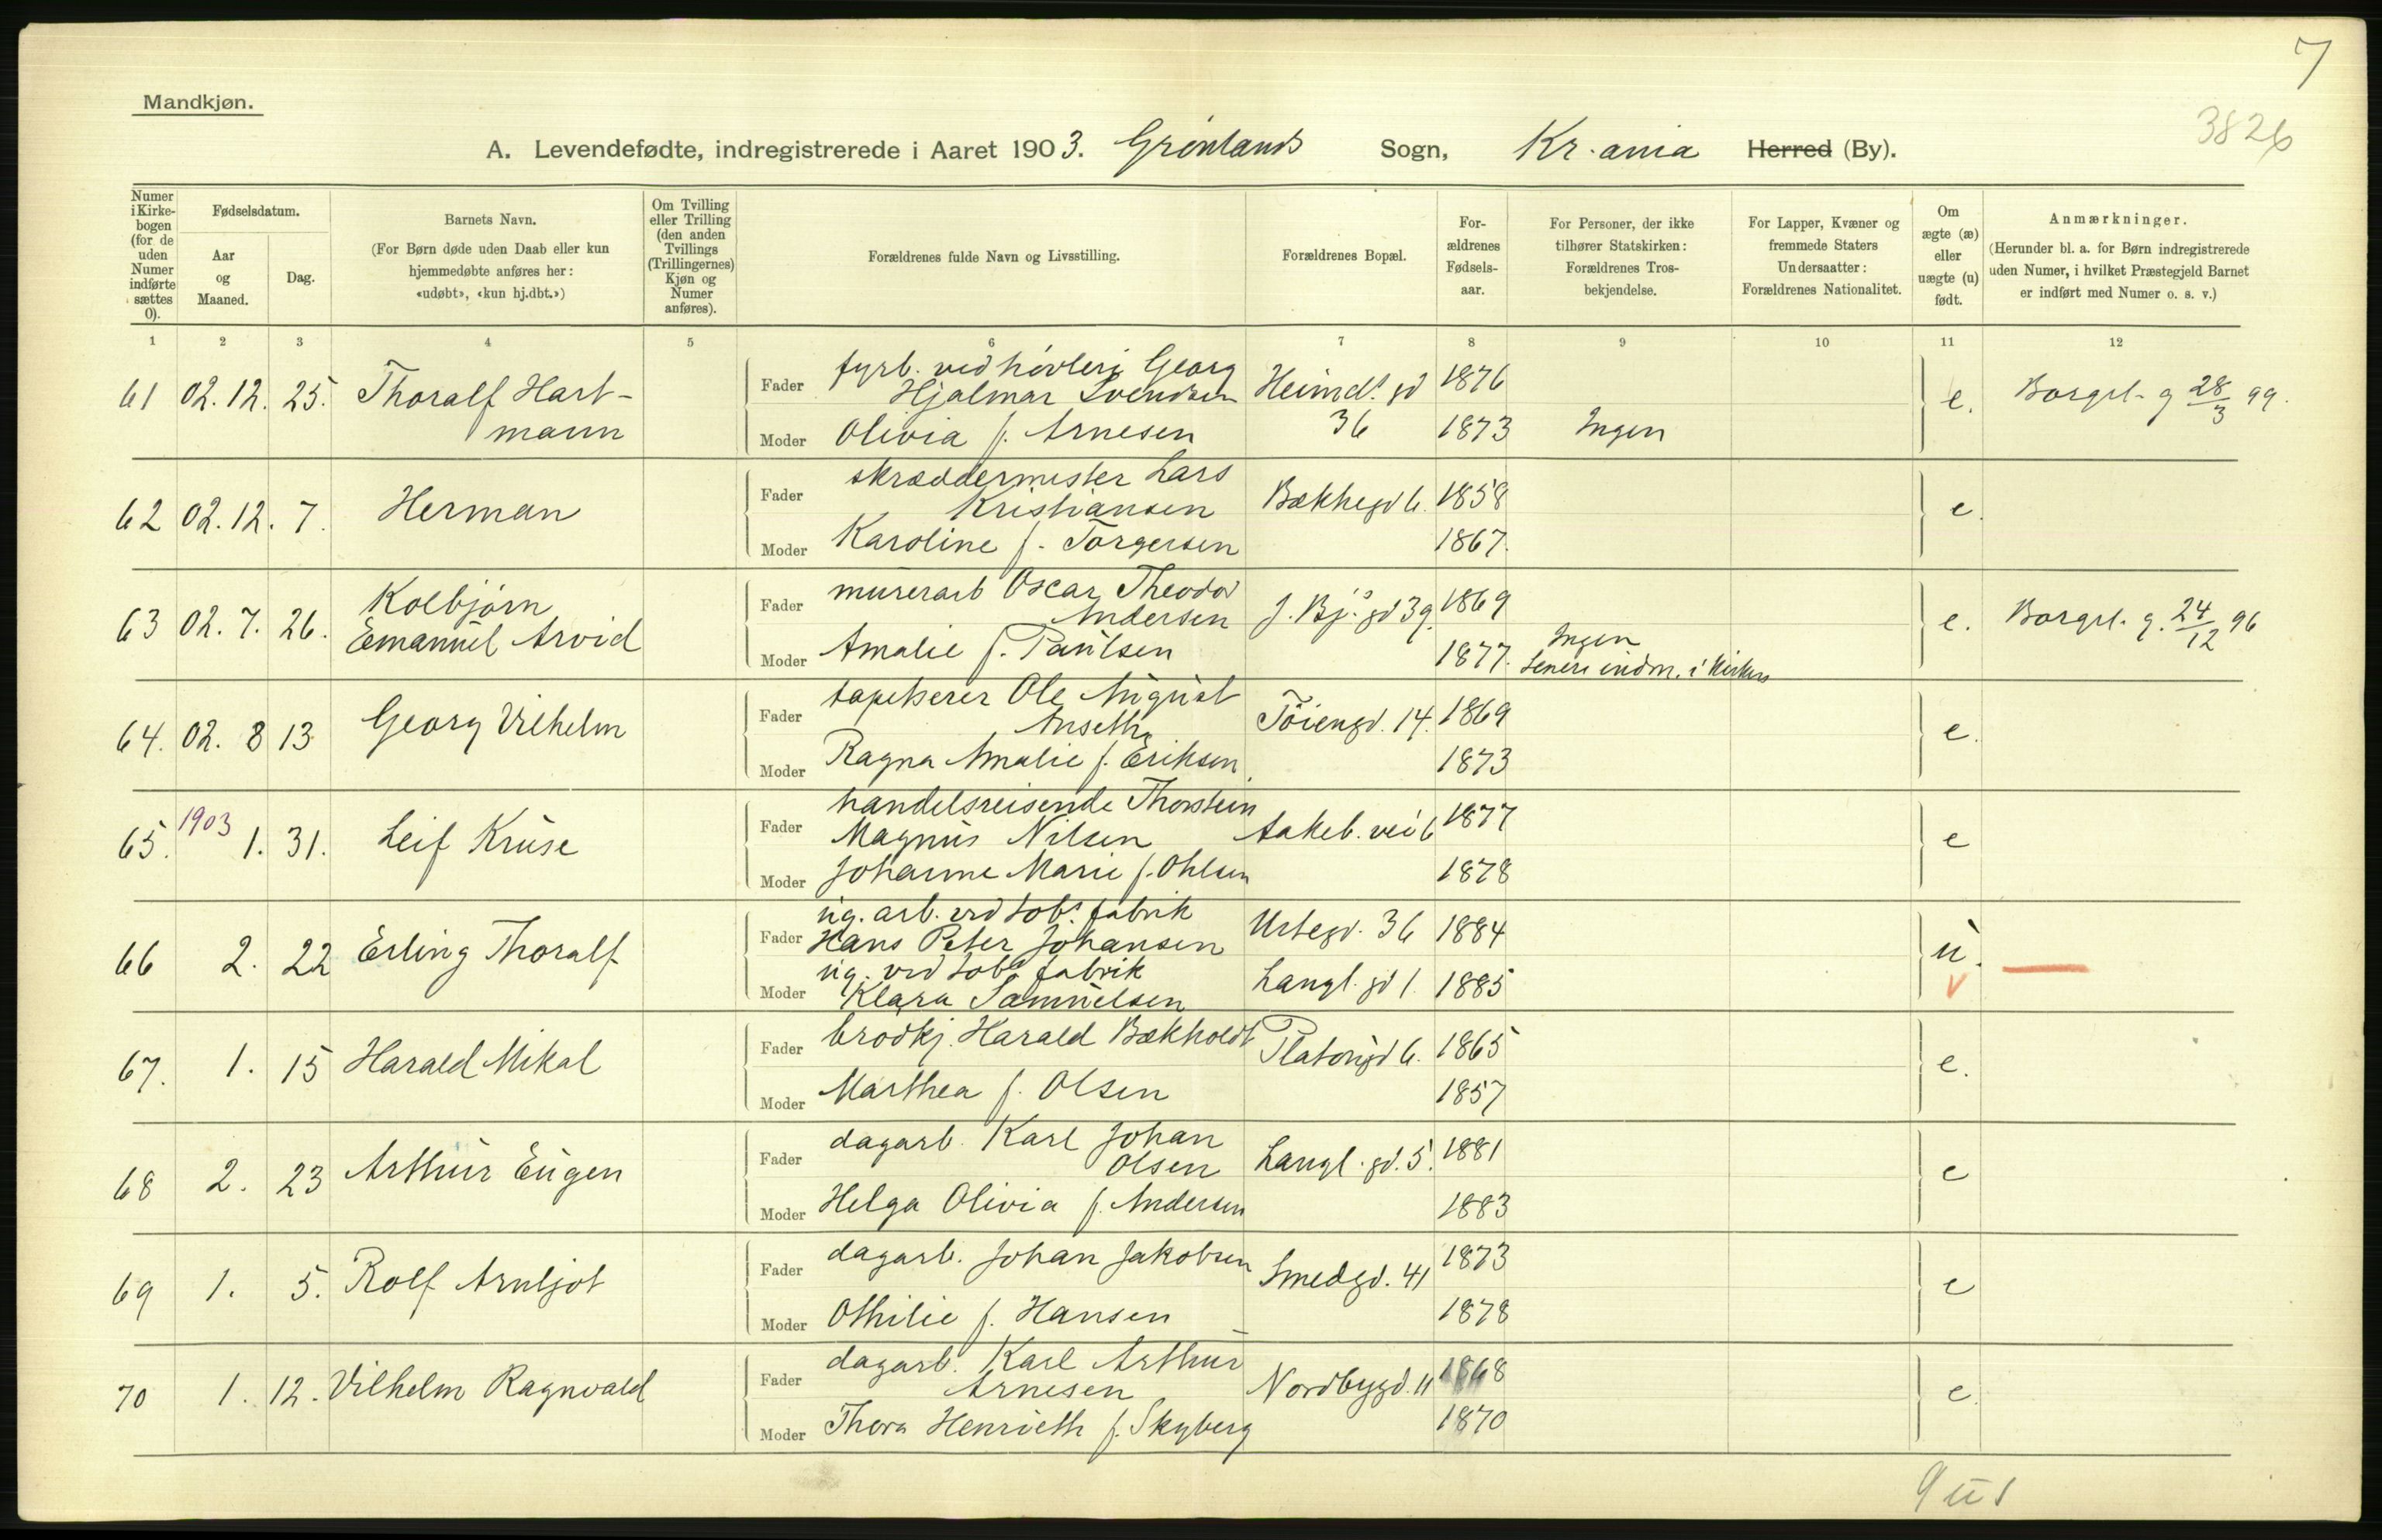 7
Mandkjøn.
3826
A. Levendefødte, indregistrerede i Aaret 1903. Grønlands Sogn, Kr.ania Herred (By).
Numer i Kirkebogen (for de uden Numer indførte sættes 0).
Fødselsdatum.
Aar og Maaned.
Dag.
Barnets Navn.
(For Børn døde uden Daab eller kun hjemmedøbte anføres her: «udøbt», «kun hj.dbt.»)
Om Tvilling eller Trilling (den anden Tvillings (Trillingernes) Kjøn og Numer anføres).
Forældrenes fulde Navn og Livsstilling.
Forældrenes Bopæl.
Forældrenes Fødselsaar.
For Personer, der ikke tilhører Statskirken: Forældrenes Trosbekjendelse.
For Lapper, Kvæner og fremmede Staters Undersaatter: Forældrenes Nationalitet.
Om ægte (æ) eller uægte (u) født.
Anmærkninger.
(Herunder bl. a. for Børn indregistrerede uden Numer, i hvilket Præstegjeld Barnet er indført med Numer o. s. v.)
1 2 3 4 5 6 7 8 9 10 11 12
61 02.12. 25. Thoralf Hartmann
Fader fyrb. ved høvleri Georg Hjalmar Svendsen Heimd.s gd 36 1876 e. Borgel. g 28/3 99.
Moder Olivia f. Arnesen 1873 Ingen
62 02.12. 7. Herman
Fader skræddermester Lars Kristiansen Bækkegd 6. 1858 e.
Moder Karoline f. Torgersen 1867.
63 02. 7. 26. Kolbjørn Emanuel Arvid
Fader murerarb Oscar Theodor Andersen J. Bj.s gd 39. 1869 e. Borgel. g. 24/12 96
Moder Amalie f. Paulsen 1877. Ingen senere indm. i Kirken
64. 02. 8 13 Georg Vilhelm
Fader tapetserer Ole August Anseth Töiengd. 14. 1869 e.
Moder Ragna Amalie f. Eriksen 1873
65. 1903 1. 31. Leif Kruse
Fader handelsreisende Thorstein Magnus Nilsen Aakeb. vei 6 1877 e
Moder Johanne Marie f. Ohlsen 1878
66 2. 22 Erling Thoralf
Fader ug. arb. ved tob.s fabrik Hans Peter Johansen Urtegd. 36 1884 u.
Moder ug. ved tob.s fabrik Klara Samuelsen Langl. gd 1. 1885
67. 1. 15 Harald Mikal
Fader brødkj. Harald Bækholdt Platougd 6. 1865 e.
Moder Marthea f. Olsen 1857
68 2. 23 Arthur Eugen
Fader dagarb. Karl Johan Olsen Langl. gd. 5. 1881 e
Moder Helga Olivia f. Andersen 1883
69 1. 5. Rolf Arnljot
Fader dagarb. Johan Jakobsen Smedgd. 41 1873 e
Moder Othilie f. Hansen 1878
70 1. 12. Vilhelm Ragnvald
Fader dagarb. Karl Arthur Arnesen Nordbygd. 11 1868 e.
Moder Thora Henriette f. Skyberg 1870
9 u 1